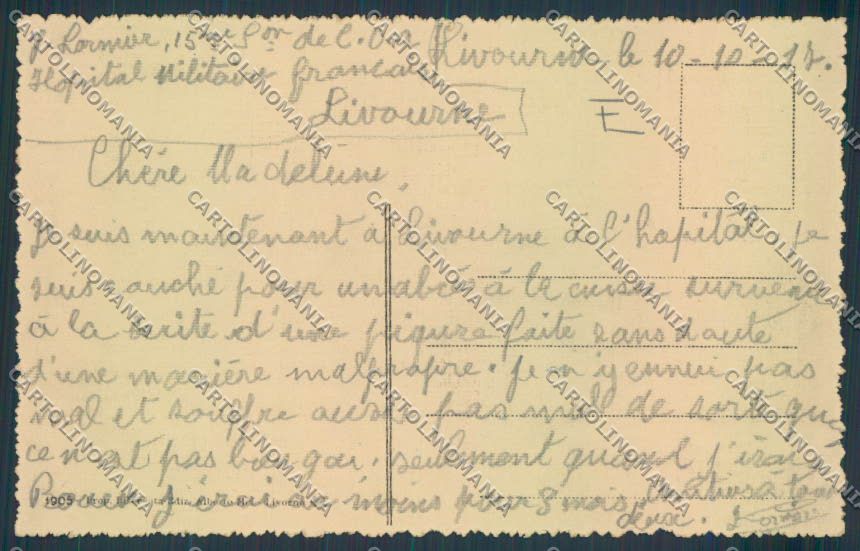 J Lormier, 15 de C. O. A
Livourne le 10-10-17.
Hôpital Militaire français
Livourne
E
Chère Madeleine,
Je suis maintenant à Livourne à l'hopital je
suis couché pour un abcès à la cuisse survenu
à la suite d'une piqure faite sans doute
d'une manière malpropre. Je m'y ennui pas
mal et souffre aussi pas mal de sorte que
ce n'est pas bien gai. Seulement quand j'irai
j'irai au moins pour 3 mois,
deux. Lormier
1905
CARTOLINOMANIA